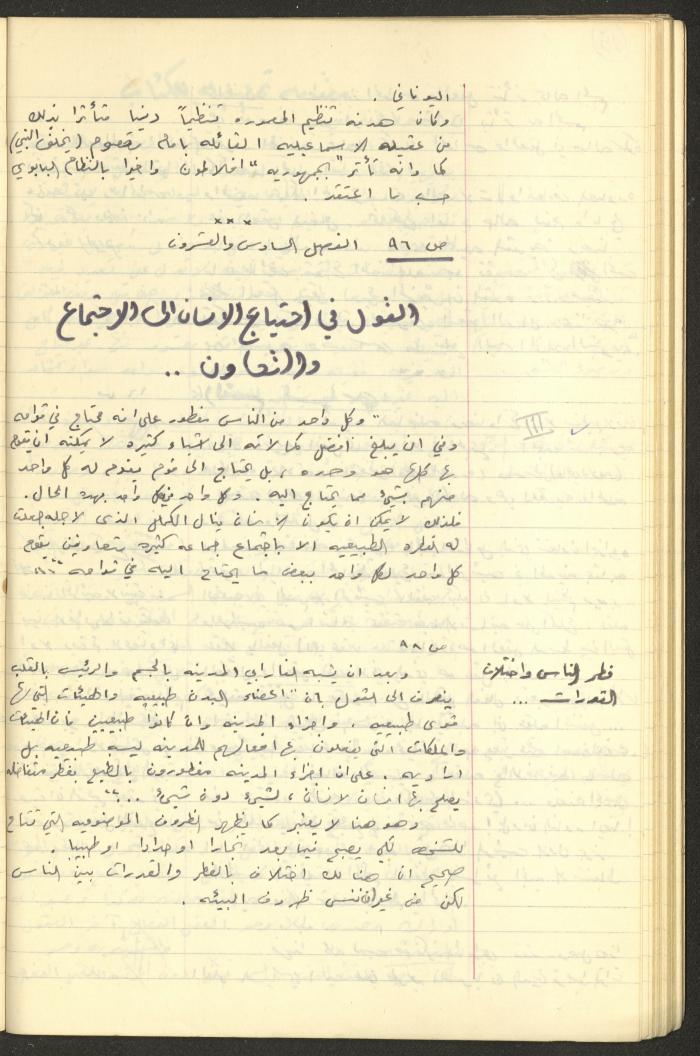 اليوناني .
وكان هدفه تنظيم المعموره تنظيماً دينيا متأثرا بذلك
من عقيدته الاسماعيليه القائله بامام معصوم (يخلف النبي)
كما وانه تأثر "بجمهورية" افلاطون واخيرا بالنظام البابوي
حسب ما اعتقد .
***
ص ٩٦ الفصل السادس والعشرون
القول في احتياج الانسان الى الاجتماع
والتعاون ..
" وكل واحد من الناس مفطور على انه محتاج في قوامه
III
وفي ان يبلغ افضل كمالاته الى اشياء كثيره لا يمكنه ان يقوم
بها كلها هو وحده ، بل يحتاج الى قوم يقوم له كل واحد
منهم بشيء مما يحتاج اليه . وكل واحد من كل واحد بهذه الحال .
فلذلك لا يمكن ان يكون الانسان ينال الكمال الذى لاجله جعلت
له الفطره الطبيعيه الا باجتماع جماعه كثيره متعاونين يقوم
كل واحد لكل واحد ببعض ما يحتاج اليه في قوامه ..."
ص ٩٨
فطر الناس واختلاف
القدرات ...
وبعد ان شبه الفارابي المدينه بالجسم والرئيس بالقلب
ينصرف الى القول بان "اعضاء البدن طبيعيه والهيئات التي لها
قوى طبيعيه . واجزاء المدينه وان كانوا طبيعيين فان الهيئات
والملكات التي يفعلون بها افعالهم للمدينه ليست طبيعيه بل
اراديه . على ان اجزاء المدينه مفطورون بالطبع بفطر متفاضله
يصلح بها انسان لانسان ، لشيء دون شيء ..."
وهو هنا لا يعتبر كما يظهر الظروف الموضوعيه التي تتاح
للشخص لكي يصبح فيما بعد نجارا او حدادا او طبيبا .
صحيح ان هنالك اختلاف بالفطر والقدرات بين الناس
لكن من غير ان ننسى ظروف البيئه .